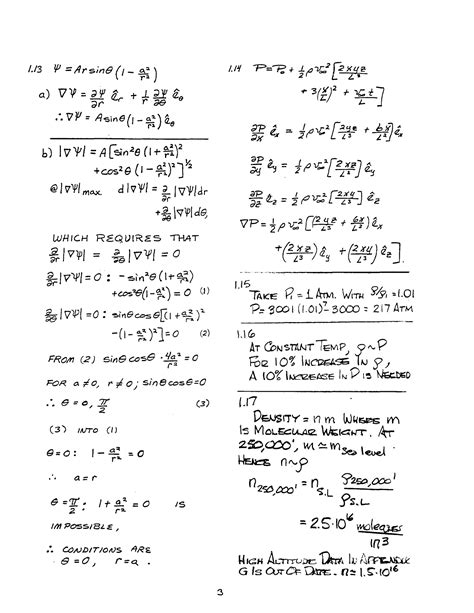 1.13 Ψ = Ar sinθ (1 - a²/r²)
a) ∇Ψ = ∂Ψ/∂r ê_r + 1/r ∂Ψ/∂θ ê_θ
∴ ∇Ψ = A sinθ (1 - a²/r²) ê_θ
b) |∇Ψ| = A [sin²θ (1 + a²/r²)²
+ cos²θ (1 - a²/r²)²]^½
@ |∇Ψ|max d|∇Ψ| = ∂/∂r |∇Ψ| dr
+ ∂/∂θ |∇Ψ| dθ,
WHICH REQUIRES THAT
∂/∂r |∇Ψ| = ∂/∂θ |∇Ψ| = 0
∂/∂r |∇Ψ| = 0 : - sin²θ (1 + a²/r²)
+ cos²θ (1 - a²/r²) = 0 (1)
∂/∂θ |∇Ψ| = 0 : sinθ cosθ [(1 + a²/r²)²
- (1 - a²/r²)²] = 0 (2)
FROM (2) sinθ cosθ · 4a²/r² = 0
FOR a ≠ 0, r ≠ 0; sinθ cosθ = 0
∴ θ = 0, π/2 (3)
(3) INTO (1)
θ = 0: 1 - a²/r² = 0
∴ a = r
θ = π/2 : 1 + a²/r² = 0 IS
IMPOSSIBLE,
∴ CONDITIONS ARE
θ = 0, r = a.
1.14 P = P₀ + ½ ρ v∞² [2xyz/L³
+ 3(x/L)² + v∞t/L]
∂P/∂x ê_x = ½ ρ v∞² [2yz/L³ + 6x/L²] ê_x
∂P/∂y ê_y = ½ ρ v∞² [2xz/L³] ê_y
∂P/∂z ê_z = ½ ρ v∞² [2xy/L³] ê_z
∇P = ½ ρ v∞² [(2yz/L³ + 6x/L²) ê_x
+ (2xz/L³) ê_y + (2xy/L³) ê_z].
1.15
TAKE P₁ = 1 ATM. WITH ρ/ρ₁ = 1.01
P = 3001 (1.01)⁷ - 3000 = 217 ATM
1.16
AT CONSTANT TEMP, ρ ~ P
FOR 10% INCREASE IN ρ,
A 10% INCREASE IN P IS NEEDED
1.17
DENSITY = n m WHERE m
IS MOLECULAR WEIGHT. AT
250,000', m ≃ m sea level.
HENCE n ~ ρ
n 250,000' = n S.L. ρ250,000' / ρS.L.
= 2.5·10¹⁶ molecules/in³
HIGH ALTITUDE DATA IN APPENDIX
G IS OUT OF DATE. n ≃ 1.5·10¹⁶
3